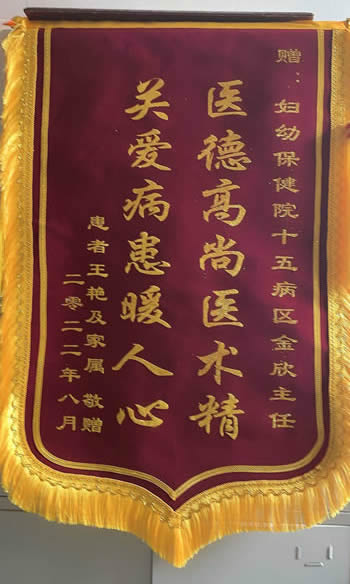 赠：妇幼保健院十五病区金欣主任
医德高尚医术精
关爱病患暖人心
患者王艳及家属 敬赠
二零二二年八月